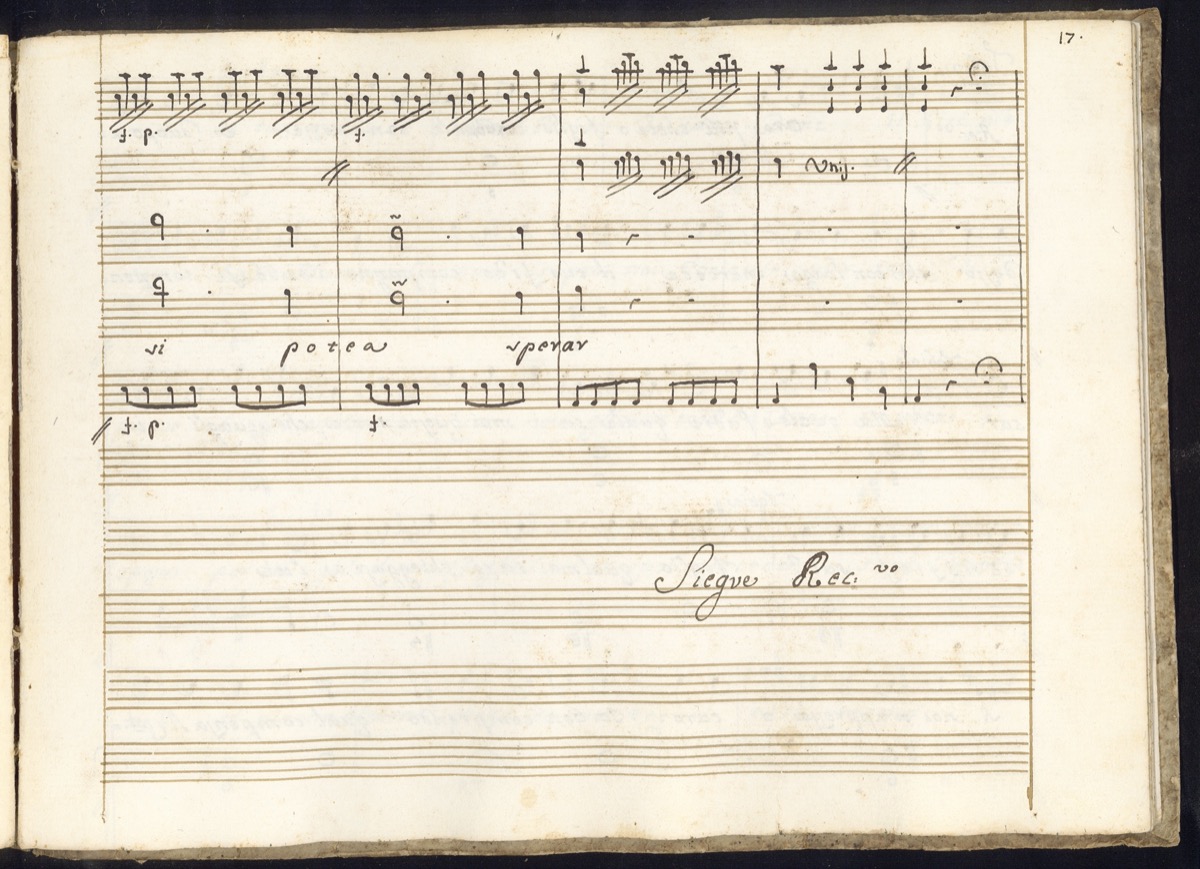 17.
f. p. f.
Unis.
si potea sperar
f. p. f.
Siegue Rec:vo